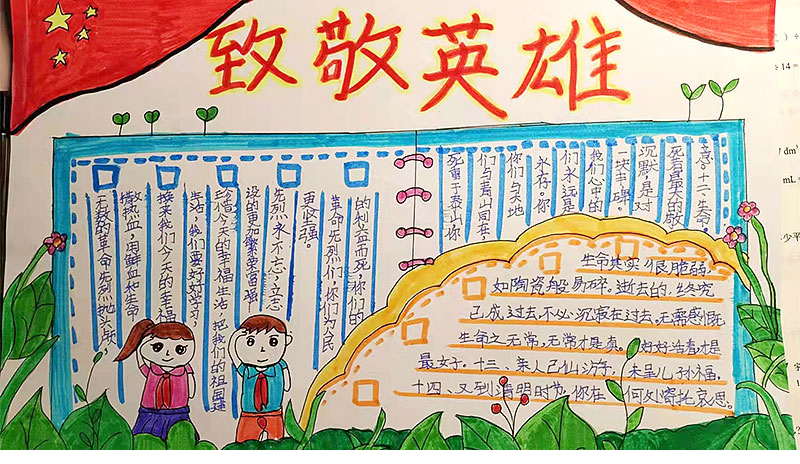 致敬英雄
无数的革命先烈抛头颅,
撒热血,用鲜血和生命
换来我们今天的幸福
生活,我们要好好学习
珍惜今天的幸福生活 把我们的祖国建
设的更加繁荣富强
先烈永不忘,立志
更坚强。
革命先烈们,你们为人民
的利益而死,你们的
死重于泰山你
们与泰山同在,
你们与天地
永存。你
们永远是
我们心中的
一块丰碑。
沉默是对
死者最大的敬
意。十二、生命。
生命其实很脆弱。
如陶瓷般易碎。逝去的,终究
已成过去,不必沉寂在过去,无需感慨
生命之无常,无常才是真。好好活着才是
最女子。十三、亲人已仙游兮,未呈儿孙福。
十四、又到清明时节,你在何处寄托哀思。
÷14 =
dm³
mL =
少平